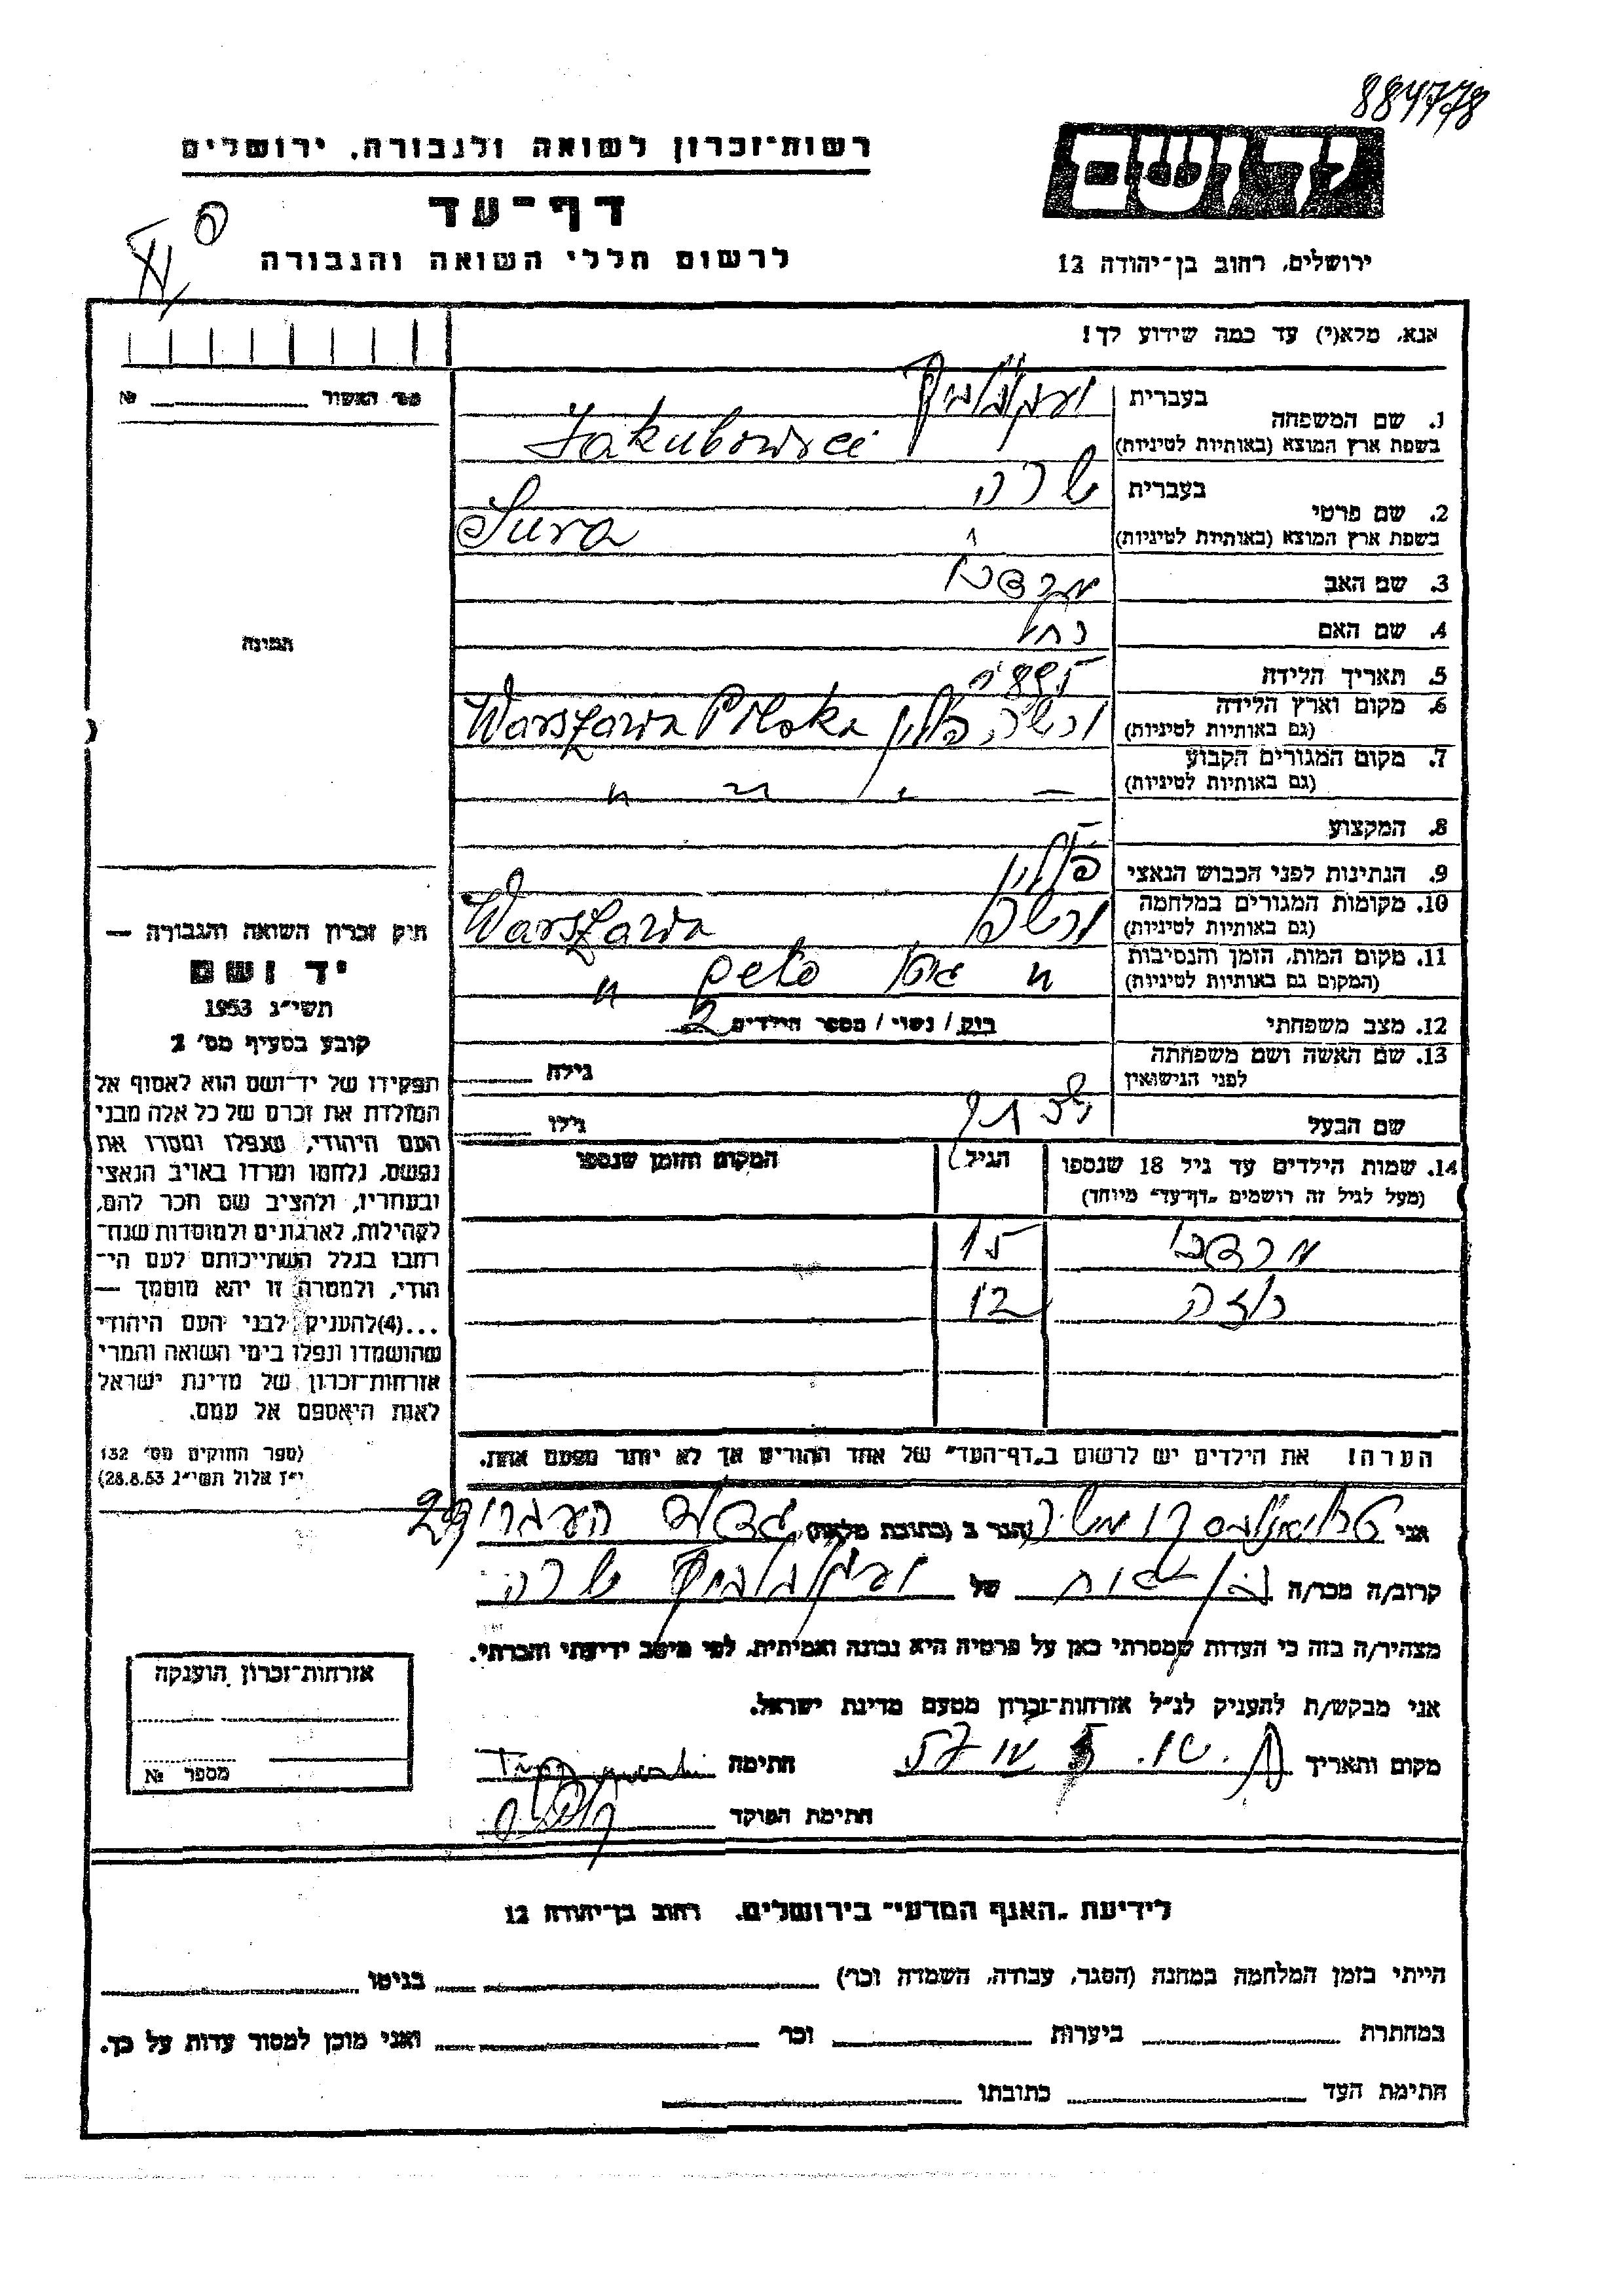 884778
יד ושם
ירושלים, רחוב בן־יהודה 12
רשות־זכרון לשואה ולגבורה, ירושלים
דף־עד
לרשום חללי השואה והגבורה
אנא, מלא(י) עד כמה שידוע לך!
1. שם המשפחה בעברית
בשפת ארץ המוצא (באותיות לטיניות) Jakubowicz
2. שם פרטי בעברית שרה
בשפת ארץ המוצא (באותיות לטיניות) Sura
3. שם האב מרדכי
4. שם האם רחל
5. תאריך הלידה 1895
6. מקום וארץ הלידה (גם באותיות לטיניות) ורשה, פולין Warszawa Polska
7. מקום המגורים הקבוע (גם באותיות לטיניות) — " — "
8. המקצוע
9. הנתינות לפני הכבוש הנאצי פולין
10. מקומות המגורים במלחמה (גם באותיות לטיניות) ורשה Warszawa
11. מקום המות, הזמן והנסיבות (המקום גם באותיות לטיניות) " גיטו geto "
12. מצב משפחתי רוק / נשוי / מספר הילדים 2
13. שם האשה ושם משפחתה לפני הנישואין גילה
שם הבעל גילו
14. שמות הילדים עד גיל 18 שנספו (מעל לגיל זה רושמים "דף־עד" מיוחד) הגיל המקום והזמן שנספו
מרדכי 15
12
הערה! את הילדים יש לרשום ב"דף־העד" של אחד ההורים אך לא יותר מפעם אחת.
אני הגר ב (כתובת מלאה) 29
קרוב/ה מכר/ה של שרה
מצהיר/ה בזה כי העדות שמסרתי כאן על פרטיה היא נכונה ואמיתית, לפי מיטב ידיעתי והכרתי.
אני מבקש/ת להעניק לנ"ל אזרחות־זכרון מטעם מדינת ישראל.
מקום ותאריך חתימה
חתימת הפוקד
מס' האשור №
תמונה
חוק זכרון השואה והגבורה —
יד ושם
תשי"ג 1953
קובע בסעיף מס' 2
תפקידו של יד־ושם הוא לאסוף אל
המולדת את זכרם של כל אלה מבני
העם היהודי, שנפלו ומסרו את
נפשם, נלחמו ומרדו באויב הנאצי
ובעוזריו, ולהציב שם וזכר להם,
לקהילות, לארגונים ולמוסדות שנח־
רבו בגלל השתייכותם לעם הי־
הודי, ולמטרה זו יהא מוסמך —
...(4) להעניק לבני העם היהודי
שהושמדו ונפלו בימי השואה והמרי
אזרחות־זכרון של מדינת ישראל
לאות היאספם אל עמם.
(ספר החוקים מס' 132
י"ז אלול תשי"ג 28.8.53)
אזרחות־זכרון הוענקה
מספר №
לידיעת "האגף המדעי" בירושלים, רחוב בן־יהודה 12
הייתי בזמן המלחמה במחנה (הסגר, עבודה, השמדה וכו') בגיטו
במחתרת ביערות וכו' ואני מוכן למסור עדות על כך.
חתימת העד כתובתו